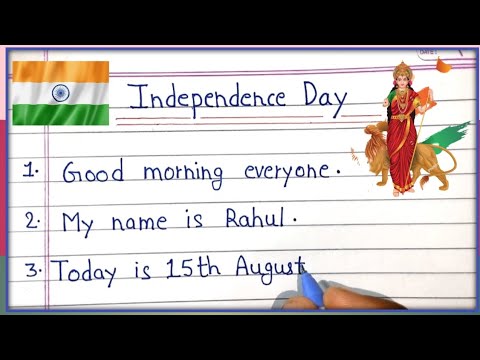 Independence Day
1. Good morning everyone.
2. My name is Rahul.
3. Today is 15th August